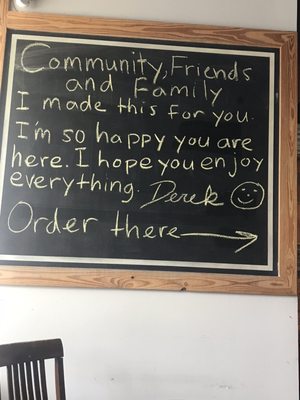 Community, Friends
and Family
I made this for you.
I'm so happy you are
here. I hope you enjoy
everything. Derek
Order there